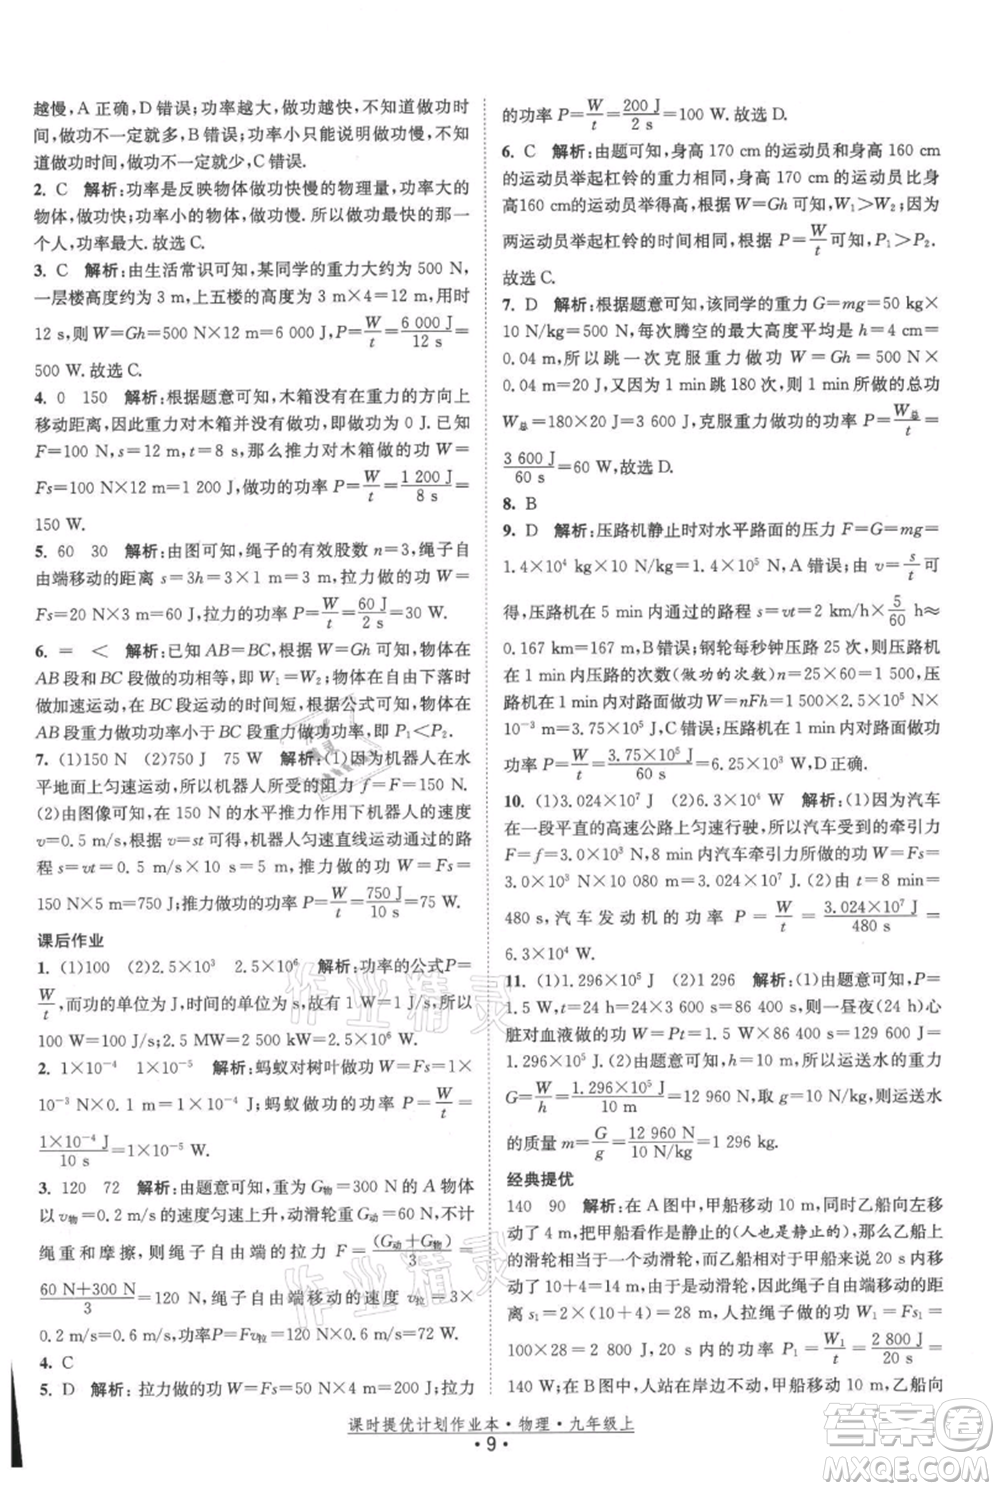 越慢,A 正确,D 错误;功率越大,做功越快,不知道做功时
间,做功不一定就多,B 错误;功率小只能说明做功慢,不知
道做功时间,做功不一定就少,C 错误.
2. C 解析:功率是反映物体做功快慢的物理量,做功最快
的物体,功率一定大;功率小的物体,做功一定慢;做功最快
的机器,功率最大.故选 C.
3. C 解析:由生活常识可知,某同学的重力大约为 500 N,
一层楼高度约为 3 m,上五楼的高度为 3 m×4=12 m,用时
12 s,则 W=Gh=500 N×12 m=6 000 J,P=W/t=6 000 J/12 s=
500 W.故选 C.
4. 0 150 解析:根据题意可知,木箱没有在重力的方向上
移动距离,因此重力对木箱没有做功,做功为 0 J.已知
F=100 N,s=12 m,t=8 s,那么推力对木箱做的功 W=
Fs=100 N×12 m=1 200 J,做功的功率 P=W/t=1 200 J/8 s=
150 W.
5. 60 30 解析:由图可知,绳子的有效股数 n=3,绳子自
由端移动的距离 s=3h=3×1 m=3 m,拉力做的功 W=Fs=
20 N×3 m=60 J,拉力的功率 P=W/t=60 J/2 s=30 W.
6. = < 解析:已知 AB=BC,根据 W=Fs 可知,物体在
AB 段和 BC 段做的功相等,即 W₁=W₂;物体在自由下落时
做加速运动,在 BC 段运动的时间短,根据公式可知,物体在
AB 段重力做功功率小于 BC 段重力做功功率,即 P₁<P₂.
7. (1)150 N (2)750 J 75 W 解析:(1)因为机器人在水
平地面上匀速运动,机器人所受的阻力 f=F=150 N.
(2)由图像可知,在 150 N 的水平推力作用下机器人的速度
v=0.5 m/s,根据 v=st 可得,机器人匀速直线运动通过的路
程 s=vt=0.5 m/s×10 s=5 m;推力做的功 W=Fs=
150 N×5 m=750 J,推力做功的功率 P=W/t=750 J/10 s=75 W.
课后作业
1. (1)100 (2)2.5×10³ 2.5×10⁶ 解析:功率的公式P=
W/t,而功的单位为 J,时间的单位为 s,1 W=1 J/s,所以
100 W=100 J/s;2.5 MW=2 500 kW=2.5×10⁶ W.
2. 1×10⁻⁴ 1×10⁻⁵ 解析:蚂蚁对树叶做功 W=Fs=1×
10⁻³ N×0.1 m=1×10⁻⁴ J;蚂蚁做功的功率 P=W/t=
1×10⁻⁴ J/10 s=1×10⁻⁵ W.
3. 120 72 解析:由题意可知,重力为 G物=300 N 的 A 物体
以 v物=0.2 m/s 的速度匀速上升,动滑轮重 G动=60 N,不计
绳重和摩擦,则绳子自由端的拉力 F=(G动+G物)/3=
60 N+300 N/3=120 N,绳子自由端移动的速度 v拉=3×
0.2 m/s=0.6 m/s,功率P=Fv拉=120 N×0.6 m/s=72 W.
4. C
5. D 解析:拉力做的功W=Fs=50 N×4 m=200 J,拉力
的功率 P=W/t=200 J/2 s=100 W.故选 D.
6. C 解析:由题可知,身高 170 cm 的运动员和身高160 cm
的运动员举起杠铃的重力相同,身高 170 cm 的运动员比身
高160 cm的运动员举得高,根据 W=Gh 可知,W₁>W₂;因为
两运动员举起杠铃的时间相同,根据 P=W/t可知,P₁>P₂.
故选 C.
7. D 解析:根据题意可知,该同学的重力 G=mg=50 kg×
10 N/kg=500 N,每次腾空的最大高度平均是 h=4 cm=
0.04 m,所以跳一次克服重力做功 W=Gh=500 N×
0.04 m=20 J;又因为 1 min 跳 180 次,可得 1 min 所做的总功
W总=180×20 J=3 600 J,克服重力做功的功率 P=W总/t=
3 600 J/60 s=60 W,故选 D.
8. B
9. D 解析:压路机静止时对水平路面的压力 F=G=mg=
1.4×10⁴ kg×10 N/kg=1.4×10⁵ N,A 错误;因为 v=s/t可
得,压路机在 5 min 内通过的路程 s=vt=2 km/h×5/60 h≈
0.167 km=167 m,B 错误;钢轮每秒钟压路 25 次,则压路机
1 min 压路的次数(做功的次数)n=25×60=1 500,压路机在
1 min 内对路面做功的大小 W=nFh=1 500×2.5×10⁵ N×
0.01 m=3.75×10⁶ J,C 错误;压路机在 1 min 内对路面做功
的功率 P=W/t=3.75×10⁶ J/60 s=6.25×10⁴ W,D正确.
10. (1)3.024×10⁷ J (2)6.3×10⁴ W 解析:(1)因为汽车
在一段平直的高速公路上匀速行驶,所以汽车受到的牵引力
F=f=3.0×10³ N,8 min 内汽车牵引力做的功 W=Fs=
3.0×10³ N×10 080 m=3.024×10⁷ J.(2)t=8 min=
480 s,汽车发动机的功率 P=W/t=3.024×10⁷ J/480 s=
6.3×10⁴ W.
11. (1)1.296×10⁵ J (2)1 296 解析:(1)由题意可知,P=
1.5 W,t=24 h=24×3 600 s=86 400 s,所以一昼夜(24 h)心
脏对血液做的功 W=Pt=1.5 W×86 400 s=129 600 J=
1.296×10⁵ J.(2)由题意可知 h=10 m,所以运送水的重力
G=W/h=1.296×10⁵ J/10 m=12 960 N,取 g=10 N/kg,则运送水
的质量 m=G/g=12 960 N/10 N/kg=1 296 kg.
经典提优
140 90 解析:在 A 图中,甲船移动 10 m,同时乙船向左移
动了 4 m,把甲船看作是静止的(人也是静止的),乙船上
的滑轮可以看成一个动滑轮,物体(乙船)相对于甲船移动
了 10+4=14(m),绳子承担的段数是 2,所以绳子自由端移动距离
s₁=2×(10+4)=28 m,人拉绳子做功 W₁=Fs₁=
100×28=2 800 J,则人拉绳子的功率 P₁=W₁/t=2 800 J/20 s=
140 W.在 B 图中,人站在岸上没动,甲船不动,乙船向
课时提优计划作业本·物理·九年级上
·9·
作业精灵
作业精灵
答案圈
MXQE.COM